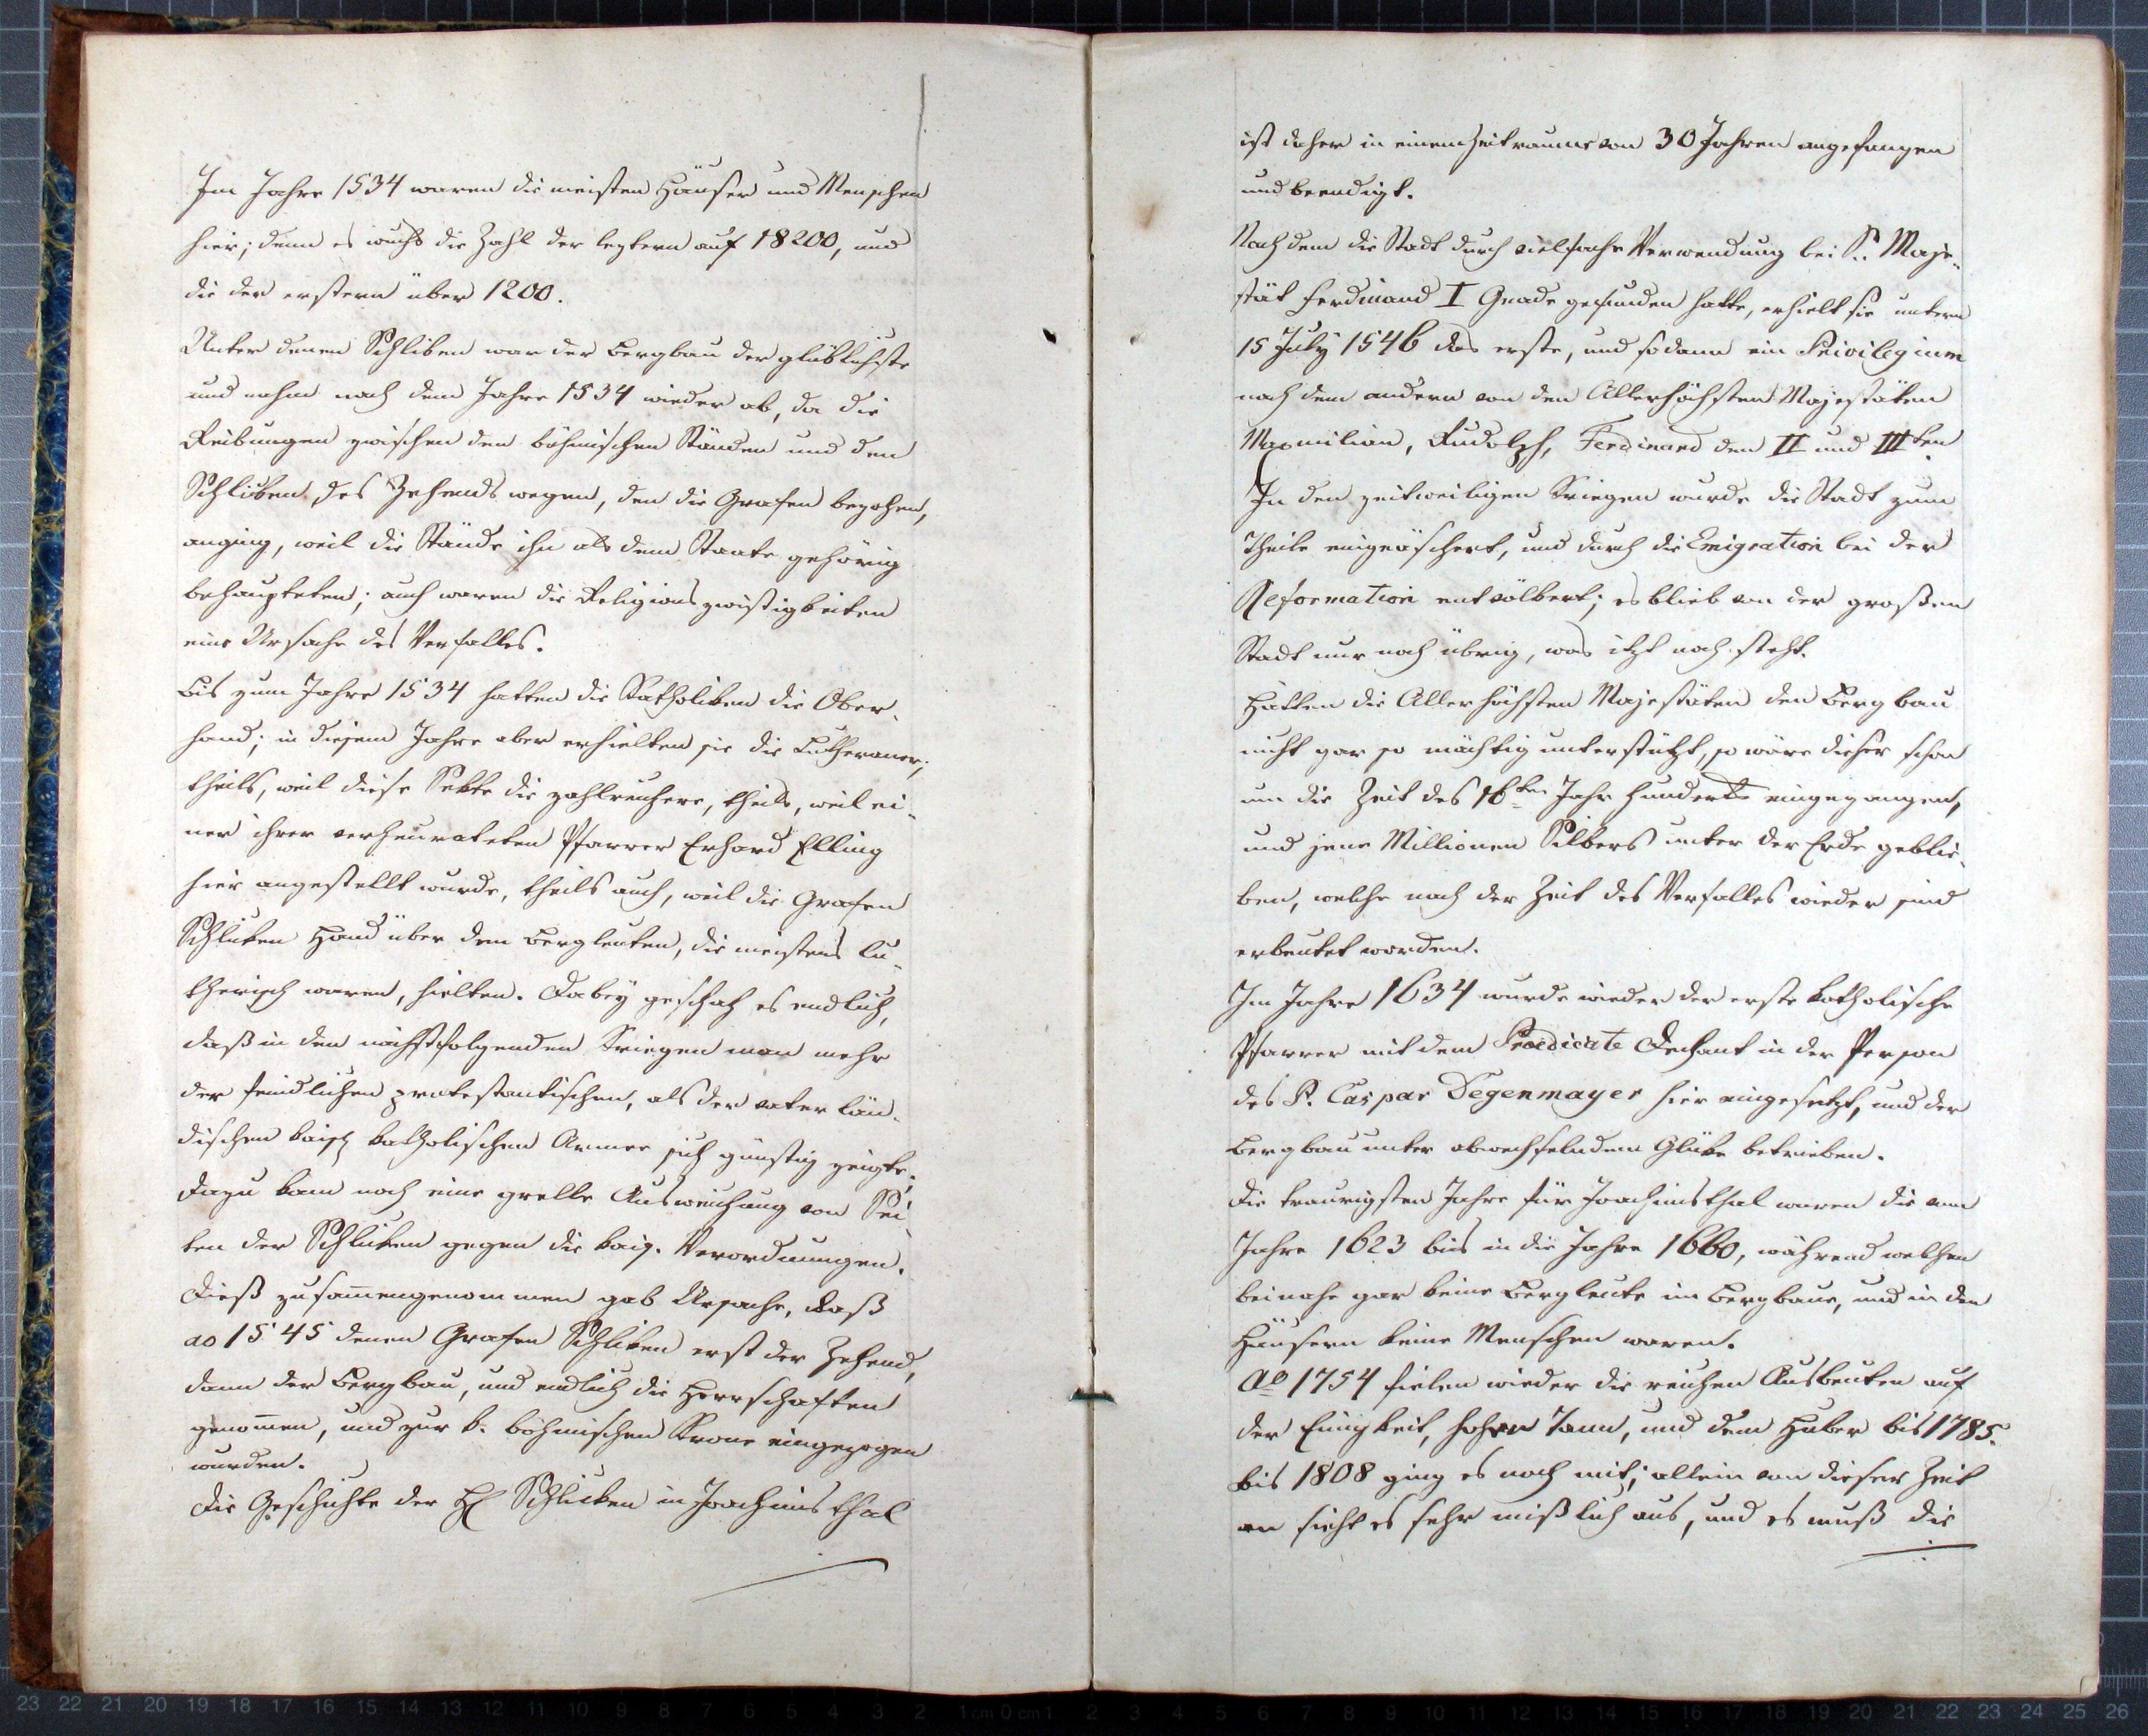 Im Jahre 1534 waren die meisten Häuser und Menschen
hier; denn es wuchs die Zahl der leztern auf 18200, und
die der erstern über 1200.
Unter denen Schliken war der Bergbau der glüklichste
und nahm nach dem Jahre 1534 wieder ab, da die
Reibungen zwischen den böhmischen Ständen und den
Schliken des Zehends wegen, den die Grafen bezohen,
anging, weil die Stände ihn als dem Staate gehörig
behaupteten; auch waren die Religions zwistigkeiten
eine Ursache des Verfalles.
Bis zum Jahre 1534 hatten die Katholiken die Ober-
hand; in diesem Jahre aber erhielten sie die Lutheraner;
theils, weil diese Sekte die zahlreichere, theils, weil ei-
ner ihrer verheurateten Pfarrer Erhard Elling
hier angestellt wurde, theils auch, weil die Grafen
Schliken Hand über den Bergleuten, die meistens lu-
therisch waren, hielten. Dabey geschah es endlich,
daß in den nächstfolgenden Kriegen man mehr
der feindlichen protestantischen, als der vaterlän-
dischen kais. katholischen Armee sich günstig zeigte;
dazu kam noch eine grelle Ausweichung von Sei-
ten der Schliken gegen die kais. Verordnungen.
Dieß zusam̅engenommen gab Ursache, daß
ao 1545 denen Grafen Schliken erst der Zehend,
dann der Bergbau, und endlich die Herrschaften
genom̅en, und zur k. böhmischen Krone eingezogen
wurden.
Die Geschichte der H Schlicken in Joachimsthal
ist daher in einem Zeitraume von 30 Jahren angefangen
und beendigt.
Nachdem die Stadt durch vielfache Verwendung bei S. Maje-
stät Ferdinand I Gnade gefunden hatte, erhielt sie unterm
15 July 1546 das erste, und sodann ein Privilegium
nach dem andern von den Allerhöchsten Majestäten
Maximilian, Rudolph, Ferdinand den II und IIIten
In den zeitweiligen Kriegen wurde die Stadt zum
Theile eingeäschert, und durch die Emigration bei der
Reformation entvölkert; es blieb von der großen
Stadt nur noch übrig, was itzt noch steht.
Hätten die Allerhöchsten Majestäten den Bergbau
nicht gar so mächtig unterstützt, so wäre dieser schon
um die Zeit des 16ten Jahrhunderts eingegangen,
und jene Millionen Silbers unter der Erde geblie-
ben, welche nach der Zeit des Verfalles wieder sind
erbeutet worden.
Im Jahre 1634 wurde wieder der erste katholische
Pfarrer mit dem Praedicate Dechant in der Person
des P. Caspar Degenmayer hier eingesetzt, und der
Bergbau unter abwechselndem Glüke betrieben.
Die traurigsten Jahre für Joachimsthal waren die vom
Jahre 1623 bis in die Jahre 1660, während welchen
beinahe gar keine Bergleute im Bergbaue, und in den
Häusern keine Menschen waren.
Ao 1754 fielen wieder die reichen Ausbeuten auf
der Einigkeit, hohen Tann, und dem Huber bis 1785.
Bis 1808 ging es noch mit; allein von dieser Zeit
an sieht es sehr mißlich aus, und es muß die
23 22 21 20 19 18 17 16 15 14 13 12 11 10 9 8 7 6 5 4 3 2 1 cm 0 cm 1 2 3 4 5 6 7 8 9 10 11 12 13 14 15 16 17 18 19 20 21 22 23 24 25 26